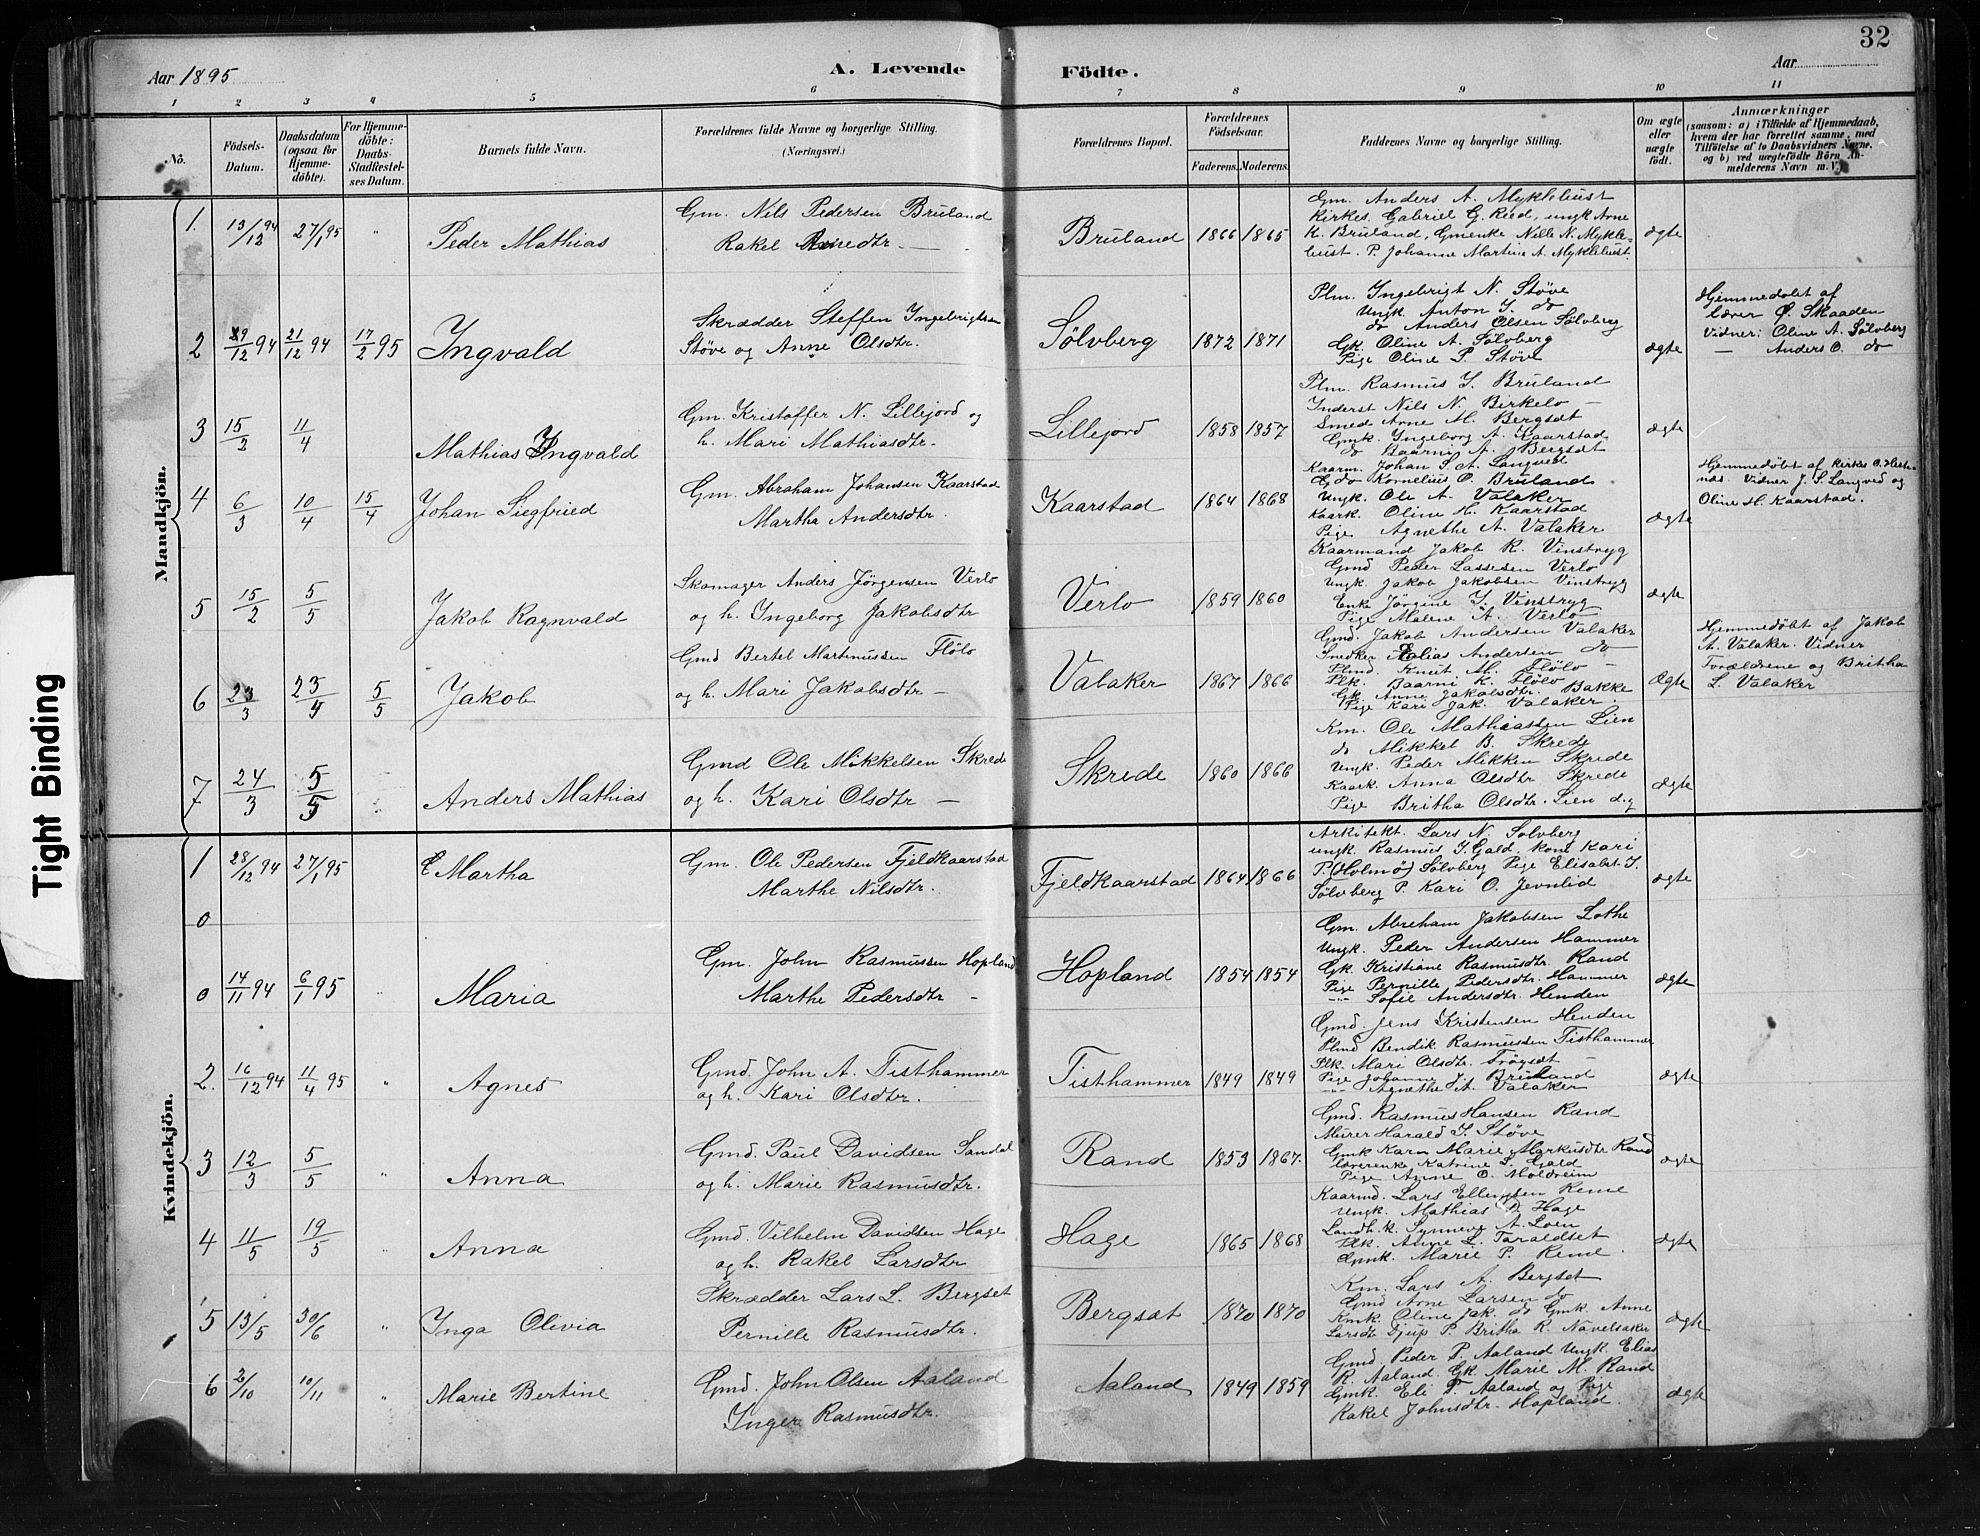 32
Aar 1895
A. Levende
Födte.
Aar
1 2 3 4 5 6 7 8 9 10 11
No.
Födsels-
Datum.
Daabsdatum
(ogsaa for
Hjemme-
döbte).
For Hjemme-
döbte:
Daabs-
Stadfæstel-
ses Datum.
Barnets fulde Navn.
Forældrenes fulde Navne og borgerlige Stilling.
(Næringsvei.)
Forældrenes Bopæl.
Forældrenes
Födselsaar.
Faderens. Moderens.
Faddernes Navne og borgerlige Stilling.
Om ægte
eller
uægte
födt.
Anmærkninger
(saasom: a) i Tilfælde af Hjemmedaab,
hvem der har forrettet samme, med
Tilföielse af to Daabsvidners Navne,
og b) ved uægtefödte Börn An-
melderens Navn m. V.)
Tight Binding
Mandkjön.
1. 13/12 94 27/1 95 " Peder Mathias
Gm. Nils Pedersen Bruland
Rakel
Bruland 1866 1865
Gm. Anders A. Myklebust
Kirkes. Gabriel G. Reed, ungk Arne
K. Bruland, Gmenke Nille N. Mykle-
bust. P. Johanne Martine A. Myklebust.
ægte
2 29/12 94 21/12 94 17/2 95 Ingvald
Skrædder Steffen Ingebrigtsen
Støve og Anne Olsdtr.
Sölvberg 1872 1871
Plm. Ingebrigt N. Støve
Ungk Anton I. do
do Anders Olsen Sölvberg
Gk. Oline A. Sölvberg
Pige Oline P. Støve
ægte
Hjemmedöbt af
lærer Ø. Skaaden
Vidner: Oline A. Sölvberg
— Anders O. do
3 15/2 11/4 Mathias Ingvald
Gm. Kristoffer N. Lillejord og
h. Mari Mathiasdtr.
Lillejord 1858 1857
Plm. Rasmus I. Bruland
Inderst Nils N. Birkelo —
Smed Arne M. Bergsæt
Gmk. Ingeborg A. Kaarstad
do Baarni A. Bergsæt
ægte
4 6/3 10/4 15/4 Johan Siegfried
Gm. Abraham Johansen Kaarstad
Martha Andersdtr.
Kaarstad 1864 1868
Kaarm. Johan S. A. Langved
G do Kornelius O. Bruland
Ungk. Ole A. Valaker
Kaark. Oline H. Kaarstad
Pige Agnethe A. Valaker
ægte
Hjemmedöbt af kirkes O. Hest-
næs. Vidner J. S. Langved og
Oline H. Kaarstad.
5 15/2 5/5 Jakob Ragnvald
Skomager Anders Jörgensen Verlo
og h. Ingeborg Jakobsdtr
Verlo 1859 1860
Kaarmand Jakob R. Vinstryg
Gmd Peder Lassesen Verlo
Ungk. Jakob Jakobsen Vinstryg
Enke Jörgine I. Vinstryg
Pige Malene A. Verlo
ægte
6 23/3 23/4 5/5 Jakob
Gmd Bertel Martinussen Flölo
og h. Mari Jakobsdtr —
Valaker 1867 1866
Gmd. Jakob Andersen Valaker
Snedker Elias Andersen do
Plmd. Knut M. Flölo —
Plk. Baarni K. Flölo
Gk. Anne Jakobsdtr. Bakke
Pige Kari Jak. Valaker.
Ægte
Hjemmedöbt af Jakob
A. Valaker. Vidner
Forældrene og Britha
L. Valaker
7 24/3 5/5 Anders Mathias
Gmd Ole Mikkelsen Skrede
og h. Kari Olsdtr —
Skrede 1860 1866
Km. Ole Mathiassen Lien
do Mikkel B. Skrede
Ungk. Peder Mikken Skrede
Kaark. Anna Olsdtr Skrede
Pige Britha Olsdtr. Lien d.y
ægte
Kvindekjön.
1 28/12 94 27/1 95 Martha
Gm. Ole Pedersen Fjeldkaarstad
Marthe Nilsdtr.
Fjeldkaarstad 1864 1866
Arkitekt. Lars N. Solvberg
ungk. Rasmus I. Gald, Kone Kari
P. (Holmö) Sölvberg Pige Elisabt I.
Sölvberg P. Kari O. Jevnlid
ægte
0
0 14/11 94 6/1 95 " Maria
Gm. John Rasmussen Hopland
Marthe Pedersdtr —
Hopland 1854 1854
Gm. Abraham Jakobsen Lothe
Ungk. Peder Andersen Hammer
Gk. Kristiane Rasmusdtr. Rand
Pige Pernille Pedersdtr. Hammer
—"— Sofie Andersdtr. Henden
ægte
2. 16/12 94 11/4 95 " Agnes
Gmd. John A. Tisthammer
og h. Kari Olsdtr.
Tisthammer 1849 1849
Gmd. Jens Kristensen Henden
Plmd Bendik Rasmussen Tisthammer
Plk. Mari Olsdtr. Fröysæt —
Pige Johanne J. Bruland
—"— Agnethe A. Valaker
ægte
3 12/3 5/5 " Anna
Gmd. Paul Davidsen Sandal
og h. Marie Rasmusdtr.
Rand 1853 1867.
Gmd. Rasmus Hansen Rand
Murer Harald I. Støve
Gmk Karn Marie Markusdtr Rand
Lærerenke Katrine L. Gald
Pige Anne O. Moldreim
ægte
4 11/5 19/5 " Anna
Gmd. Vilhelm Davidsen Hage
og h. Rakel Larsdtr
Hage 1865 1868
Kaarmd. Lars Ellingsen Reme
Ungk. Mathias D. Hage
Landh. k. Synneve A. Loen
Plk. Anne L. Taraldset
Gmk. Marie P. Reme.
ægte
5 13/5 30/6 " Inga Olivia
Skrædder Lars L. Bergset
Pernille Rasmusdtr.
Bergsæt 1870 1870
Km. Lars A. Bergset
Gmd Arne Larsen do
Kmk. Oline Jak. do Gmk. Anne
Larsdtr Djup P. Britha R. Navelsaker
ægte
6 2/10 10/11 " Marie Bertine
Gmd. John Olsen Aaland
Inger Rasmusdtr.
Aaland 1849 1859
Gmd Peder P. Aaland Ungk. Elias
R. Aaland. Gk. Marie M. Rand
Gmk. Eli T. Aaland og Pige
Rakel Johnsdtr. Hopland.
ægte